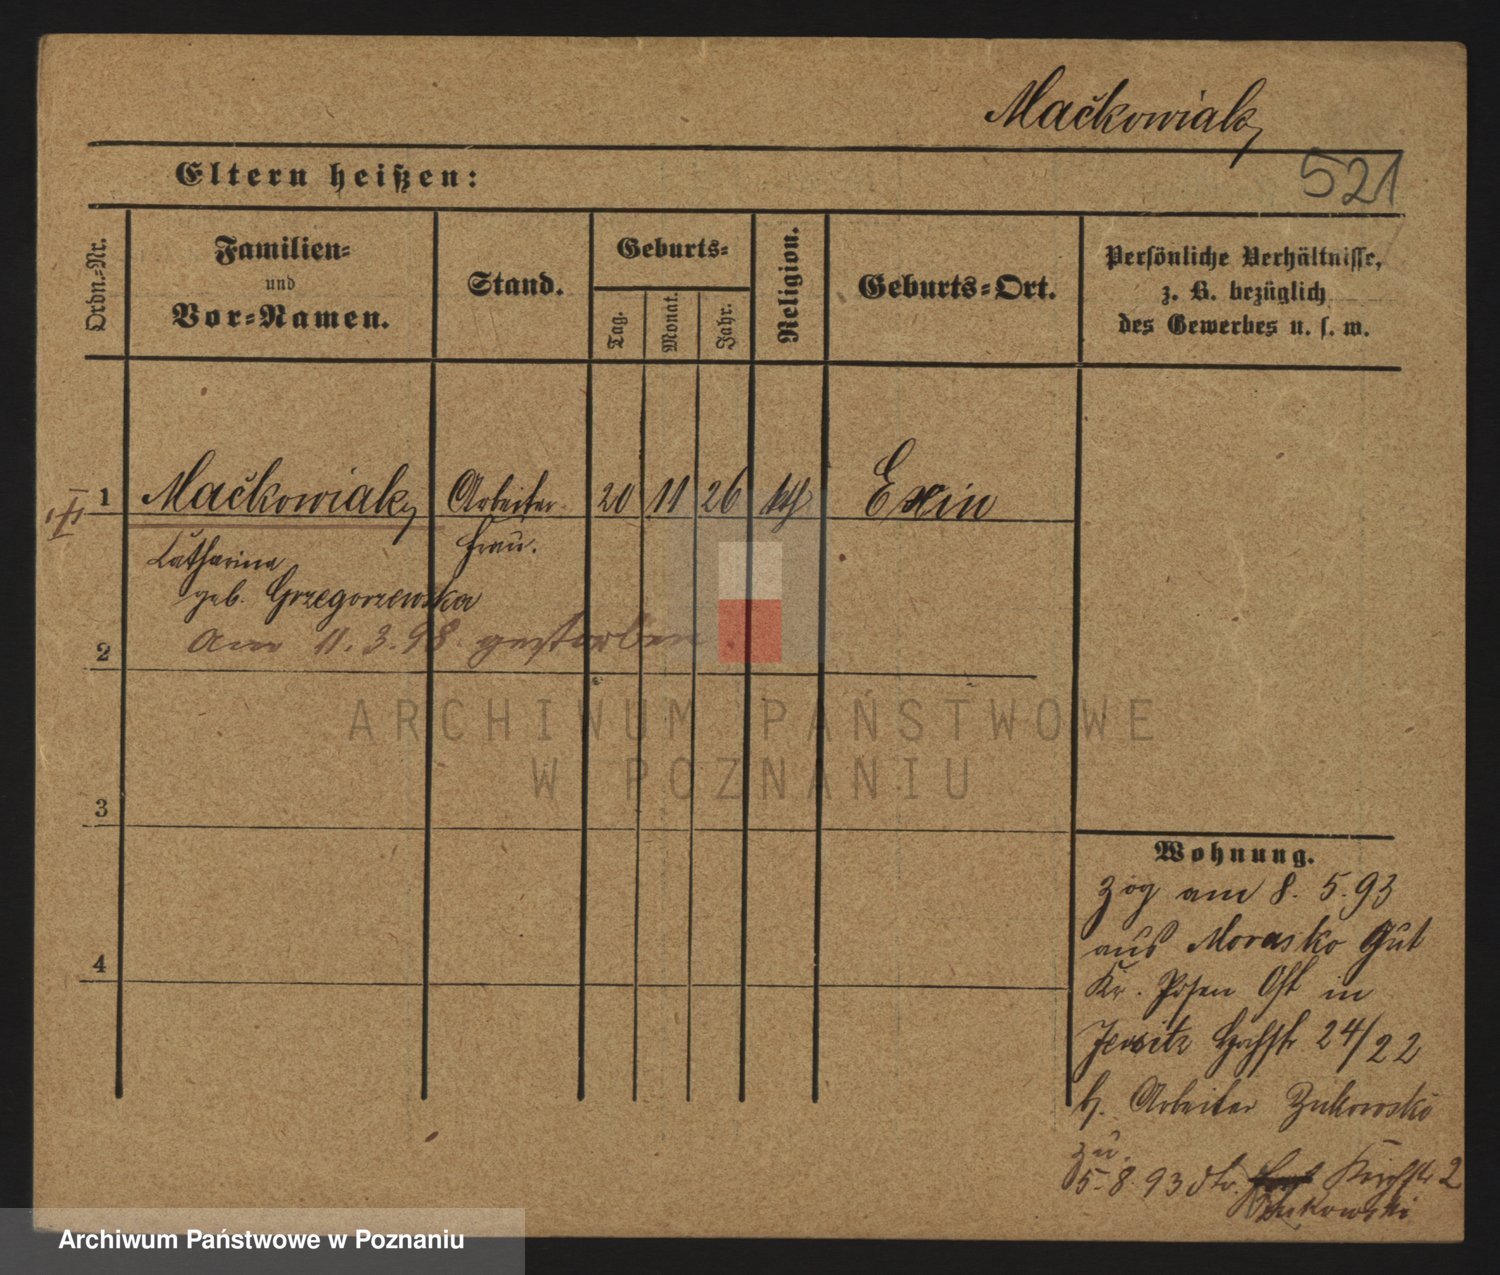 Mačkowiak
521
Eltern heißen:
Ordn.-Nr.
Familien-
und
Vor-Namen.
Stand.
Geburts-
Tag.
Monat.
Jahr.
Religion.
Geburts-Ort.
Persönliche Verhältnisse,
z. B. bezüglich
des Gewerbes u. s. w.
1 Mačkowiak Arbeiter 20 11 26 kth Exin
Catharina frau.
geb. Grzegorzewska
am 11.3.98. gestorben
2
3
4
ARCHIWUM PAŃSTWOWE
W POZNANIU
Wohnung.
zog am 8. 5. 93
aus Morasko Gut
Kr. Posen Ost in
Jersitz Hochstr 24/22
b. Arbeiter Zukowski
zu
5. 8. 93 Kirchstr 2
Zukowski
Archiwum Państwowe w Poznaniu